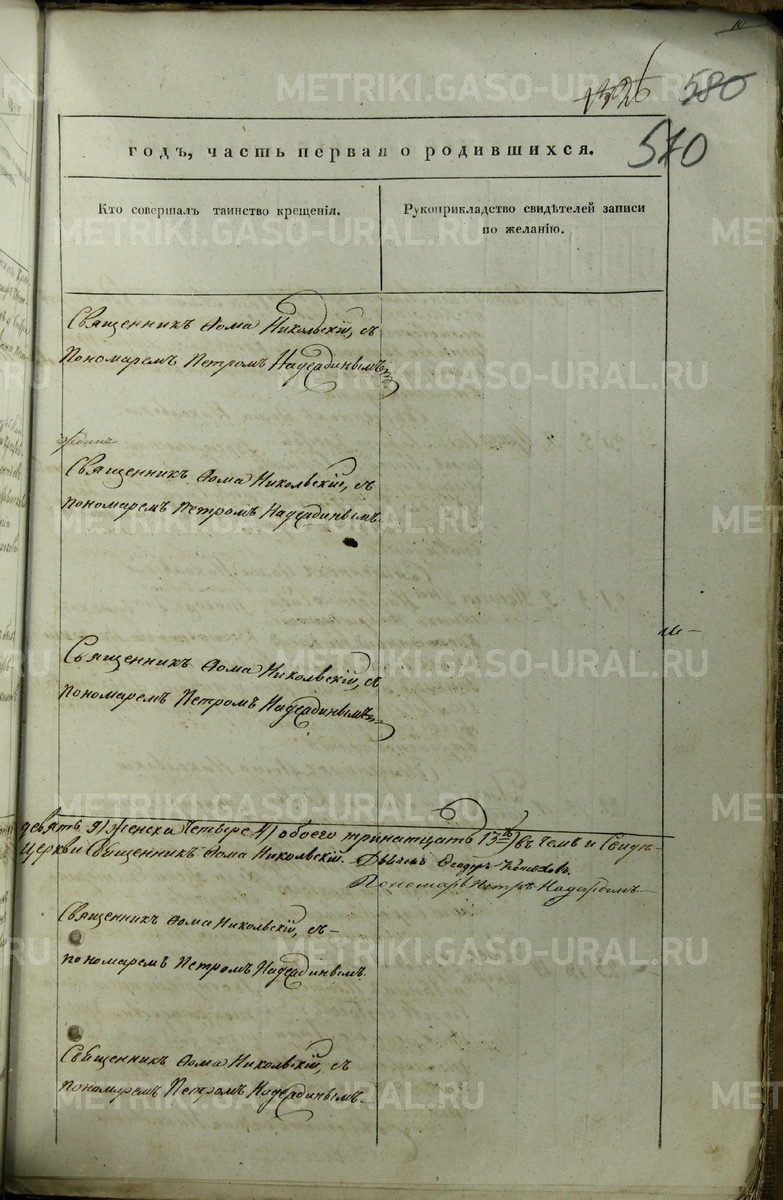 580
510
годъ, часть первая о родившихся.
Кто совершалъ таинство крещенія.
Рукоприкладство свидѣтелей записи
по желанію.
Священникъ Ѳома Никольскій, съ
пономаремъ Петромъ Надеждинымъ
Священникъ Ѳома Никольскій, съ
пономаремъ Петромъ Надеждинымъ.
Священникъ Ѳома Никольскій, съ
пономаремъ Петромъ Надеждинымъ
девять 9) женска четвере 4) обоего тринатцать 13ть) въ чемъ и Свидѣ-
церкви Священникъ Ѳома Никольскій. Дьячекъ Ѳеодоръ
Пономарь Петръ
Священникъ Ѳома Никольскій, съ-
пономаремъ Петромъ Надеждинымъ
Священникъ Ѳома Никольскій, съ
пономаремъ Петромъ Надеждинымъ.
METRIKI.GASO-URAL.RU